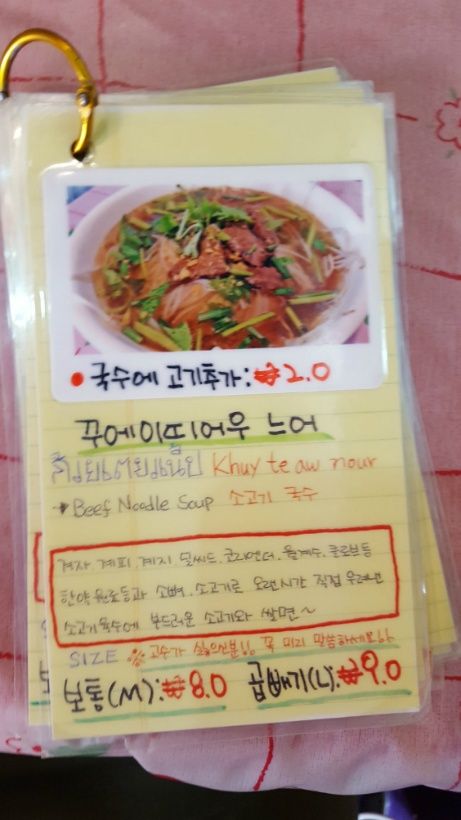 • 국수에 고기추가: ₩2.0
꾸에이띠어우 느어
Khuy te aw nour
Beef Noodle Soup 소고기 국수
겨자, 계피, 계지, 딜씨드, 코리언더, 월계수, 클로브등
한약원료등과 소뼈, 소고기로 오랜시간 직접 우려낸
소고기육수에 부드러운 소고기와 쌀면~
SIZE ※ 고수가 싫으신분님 꼭 미리 말씀하세요
보통(M): ₩8.0 곱빼기(L): ₩9.0